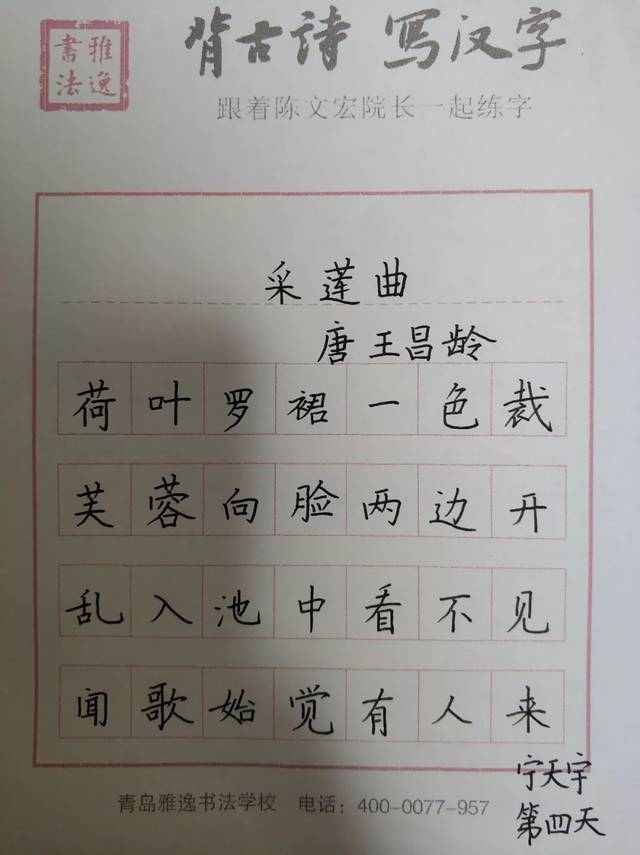 雅逸书法
背古诗 写汉字
跟着陈文宏院长一起练字
采莲曲
唐 王昌龄
荷叶罗裙一色裁
芙蓉向脸两边开
乱入池中看不见
闻歌始觉有人来
宁天宇
青岛雅逸书法学校 电话：400-0077-957
第四天